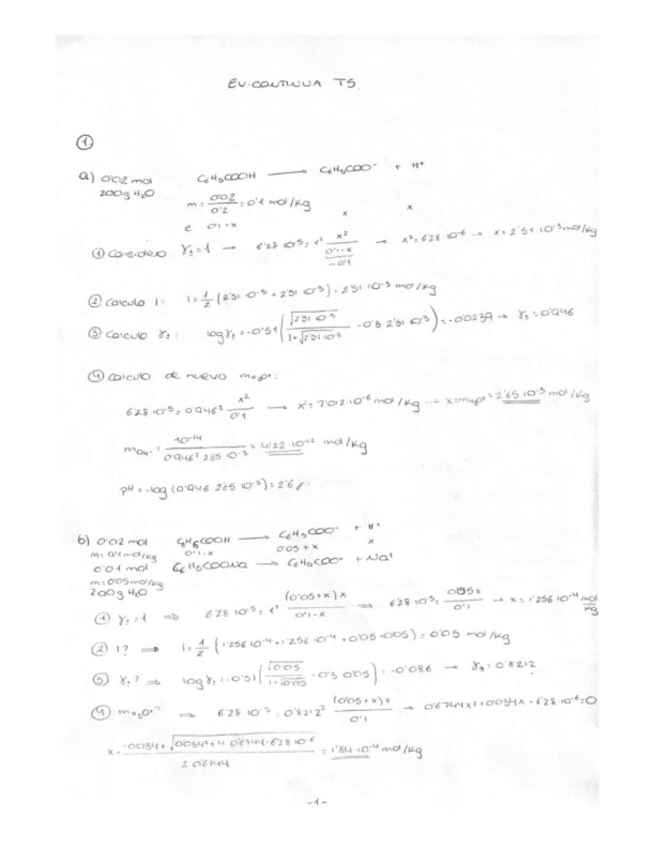 EV. CONTINUA T5
①
a) 0'02 mol C₆H₅COOH ⟶ C₆H₅COO⁻ + H⁺
200g H₂O m = 0'02/0'2 = 0'1 mol/kg
e 0'1-x x x
① Considero γ± = 1 → 6'28·10⁻⁵ = 1² x²/(0'1-x) ~0'1 → x² = 6'28·10⁻⁶ → x = 2'51·10⁻³ mol/kg
② Calculo I: I = 1/2 (2'51·10⁻³ + 2'51·10⁻³) = 2'51·10⁻³ mol/kg
③ Calculo γ±: log γ± = -0'51 (√(2'51·10⁻³)/(1+√(2'51·10⁻³)) - 0'3·2'51·10⁻³) = -0'0239 → γ± = 0'946
④ Calculo de nuevo mH₃O⁺:
6'28·10⁻⁵ = 0'946² x²/0'1 → x² = 7'012·10⁻⁶ mol/kg → x = mH₃O⁺ = 2'65·10⁻³ mol/kg
mOH⁻ = 10⁻¹⁴/(0'946² 2'65·10⁻³) = 4'22·10⁻¹² mol/kg
pH = -log (0'946·2'65·10⁻³) = 2'6
b) 0'02 mol C₆H₅COOH ⟶ C₆H₅COO⁻ + H⁺
m = 0'1 mol/kg 0'1-x 0'05+x x
0'01 mol C₆H₅COONa ⟶ C₆H₅COO⁻ + Na⁺
m = 0'05 mol/kg
200g H₂O
① γ± = 1 ⇒ 6'28·10⁻⁵ = 1² (0'05+x)x/(0'1-x) ⇒ 6'28·10⁻⁵ = 0'05x/0'1 → x = 1'256·10⁻⁴ mol/kg
② I? ⇒ I = 1/2 (1'256·10⁻⁴ + 1'256·10⁻⁴ + 0'05+0'05) = 0'05 mol/kg
③ γ±? ⇒ log γ± = -0'51 (√0'05/(1+√0'05) - 0'3·0'05) = -0'086 → γ± = 0'8212
④ mH₃O⁺? ⇒ 6'28·10⁻⁵ = 0'8212² (0'05+x)x/0'1 → 0'6744x² + 0'034x - 6'28·10⁻⁶ = 0
x = (-0'034 + √(0'034² + 4·0'6744·6'28·10⁻⁶))/(2·0'6744) = 1'84·10⁻⁴ mol/kg
-1-